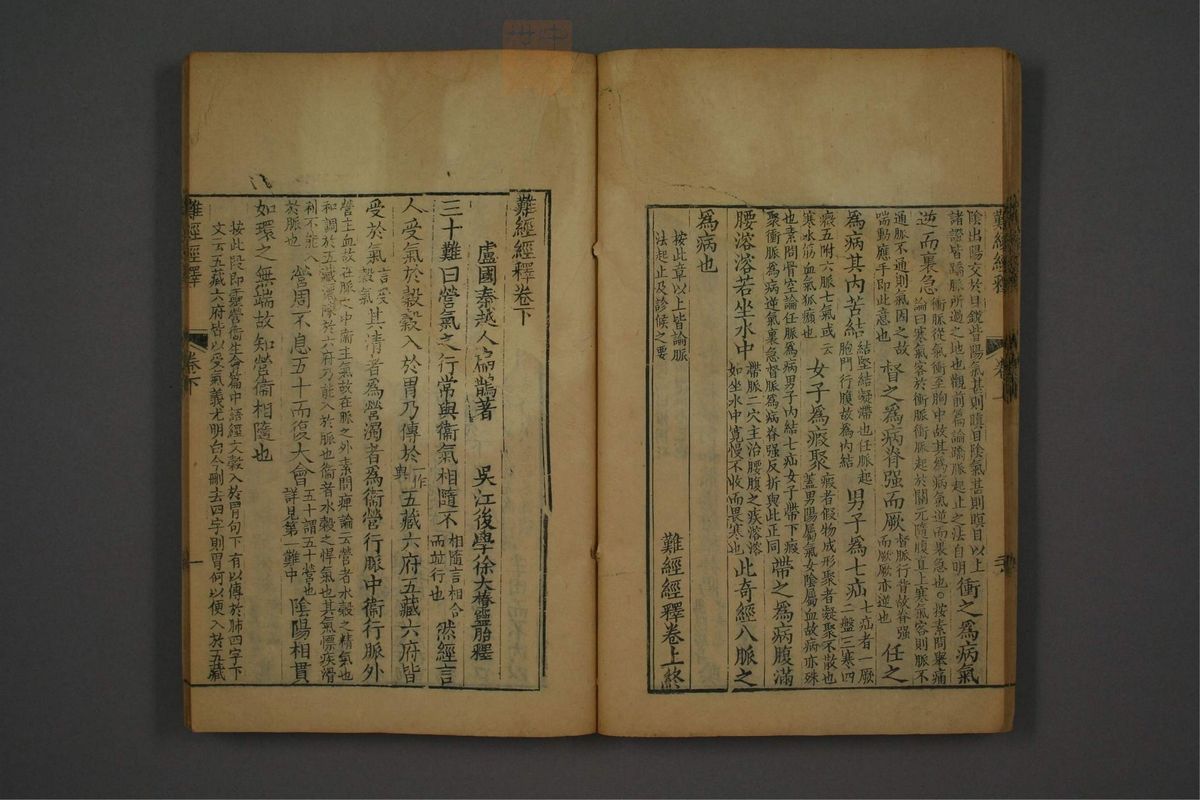 難經經釋
陰出陽交於目銳眥陽氣甚則瞋目陰氣甚則瞑目以上
諸證皆蹻脈所過之地也觀前篇論蹻脈起止之法自明
衝之為病氣
逆而裏急
衝脈從氣衝至胸中故其為病氣逆而裏急也○按素問舉痛
論曰寒氣客於衝脈衝脈起於關元隨腹直上寒氣客則脈不
通脈不通則氣因之故
喘動應手即此意也
督之為病脊强而厥
督脈行背故脊强
而厥厥亦逆也
任之
為病其内苦結
結堅結凝滯也任脈起
胞門行腹故為内結
男子為七疝
七疝者一厥
二盤三寒四
癥五附六脈七氣或云
寒水筋血氣狐癩也
女子為瘕聚
瘕者假物成形聚者凝聚不散也
蓋男陽屬氣女陰屬血故病亦殊
也素問骨空論任脈為病男子内結七疝女子帶下瘕
聚衝脈為病逆氣裏急督脈為病脊强反折與此正同
帶之為病腹滿
腰溶溶若坐水中
帶脈二穴主治腰腹之疾溶溶
如坐水中寬慢不收而畏寒也
此奇經八脈之
為病也
按此章以上皆論脈
法起止及診候之要
難經經釋卷上終
難經經釋卷下
盧國秦越人扁鵲著 吳江後學徐大椿靈胎釋
三十難曰營氣之行常與衞氣相隨不
相隨言相合
而竝行也
然經言
人受氣於穀穀入於胃乃傳於
一作
與
五藏六府五藏六府皆
受於氣
言受
穀氣
其清者為營濁者為衞營行脈中衞行脈外
營主血故在脈之中衞主氣故在脈之外素問痹論云營者水穀之精氣也
和調於五藏灑陳於六府乃能入於脈也衞者水穀之悍氣也其氣慓疾滑
利不能入
於脈也
營周不息五十而復大會
五十謂五十營也
詳見第一難中
陰陽相貫
如環之無端故知營衞相隨也
按此一段即靈營衞生會篇中語經文穀入於胃句下有以傳於肺四字下
文云五藏六府皆以受氣義尤明白今刪去四字則胃何以便入於五藏
難經經釋
卷下
一